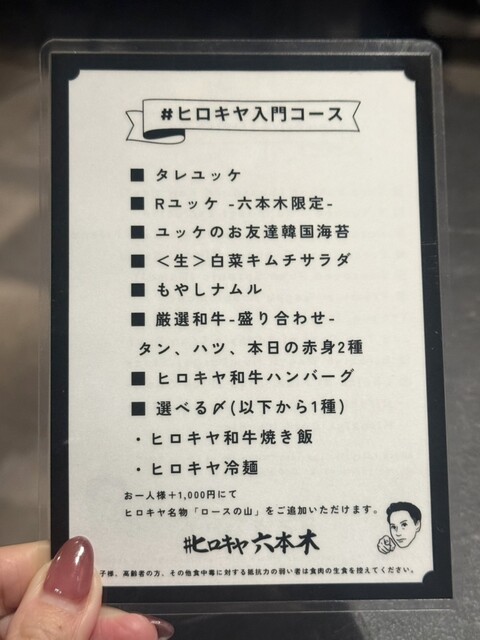 #ヒロキヤ入門コース
■ タレユッケ
■ Rユッケ -六本木限定-
■ ユッケのお友達韓国海苔
■ <生>白菜キムチサラダ
■ もやしナムル
■ 厳選和牛-盛り合わせ-
タン、ハツ、本日の赤身2種
■ ヒロキヤ和牛ハンバーグ
■ 選べる〆(以下から1種)
・ヒロキヤ和牛焼き飯
・ヒロキヤ冷麺
お一人様+1,000円にて
ヒロキヤ名物「ロースの山」をご追加いただけます。
#ヒロキヤ 六本木
子様、高齢者の方、その他食中毒に対する抵抗力の弱い者は食肉の生食を控えてください。